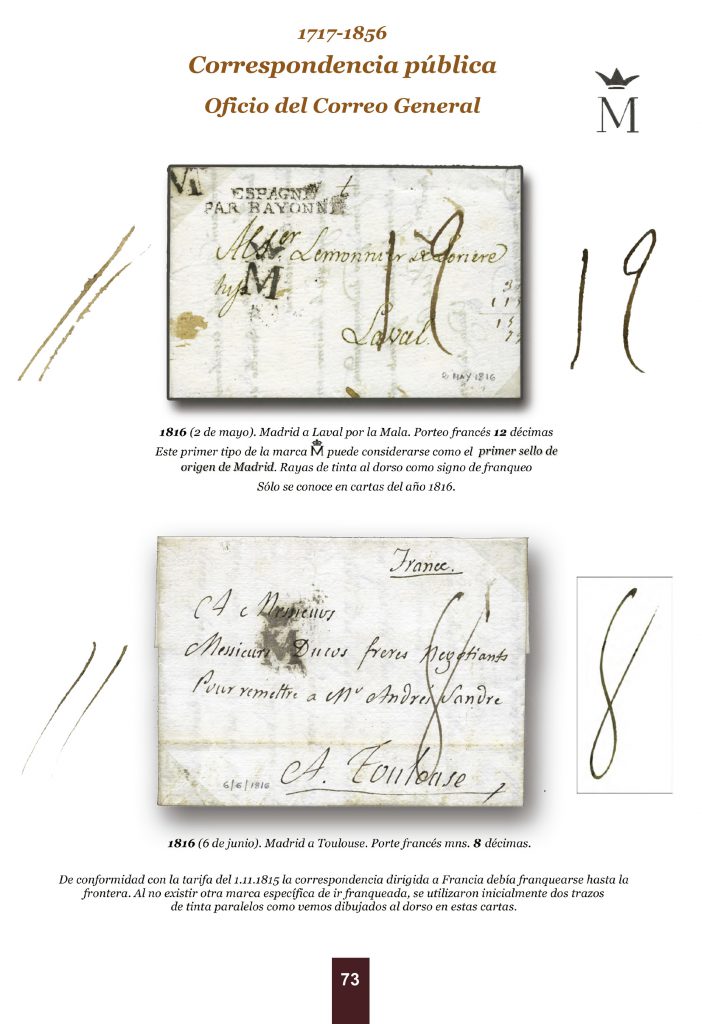 1717-1856
Correspondencia pública
Oficio del Correo General
M
ESPAGNE
PAR BAYONNE
M
Lemonnier
19
Laval.
2 MAY 1816
19
1816 (2 de mayo). Madrid a Laval por la Mala. Porteo francés 12 décimas
Este primer tipo de la marca M puede considerarse como el primer sello de
origen de Madrid. Rayas de tinta al dorso como signo de franqueo
Sólo se conoce en cartas del año 1816.
France.
M
Messieurs Ducos freres negotiants
Pour remettre a Mr Andrés Sandre
8
A. Toulouse
6/6/1816
8
1816 (6 de junio). Madrid a Toulouse. Porte francés mns. 8 décimas.
De conformidad con la tarifa del 1.11.1815 la correspondencia dirigida a Francia debía franquearse hasta la
frontera. Al no existir otra marca específica de ir franqueada, se utilizaron inicialmente dos trazos
de tinta paralelos como vemos dibujados al dorso en estas cartas.
73